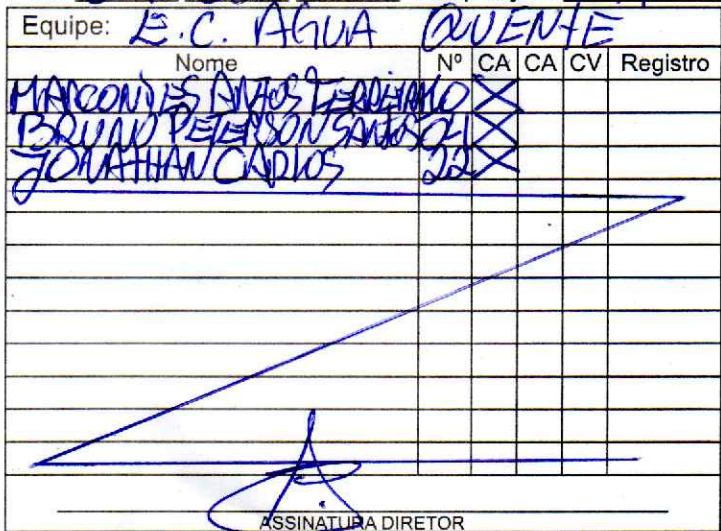 Equipe: E.C. AGUA QUENTE
Nome Nº CA CA CV Registro
MARCONDES X
BRUNO PETERSON SANTOS 04 X
JONATHAN CARLOS 22 X
ASSINATURA DIRETOR